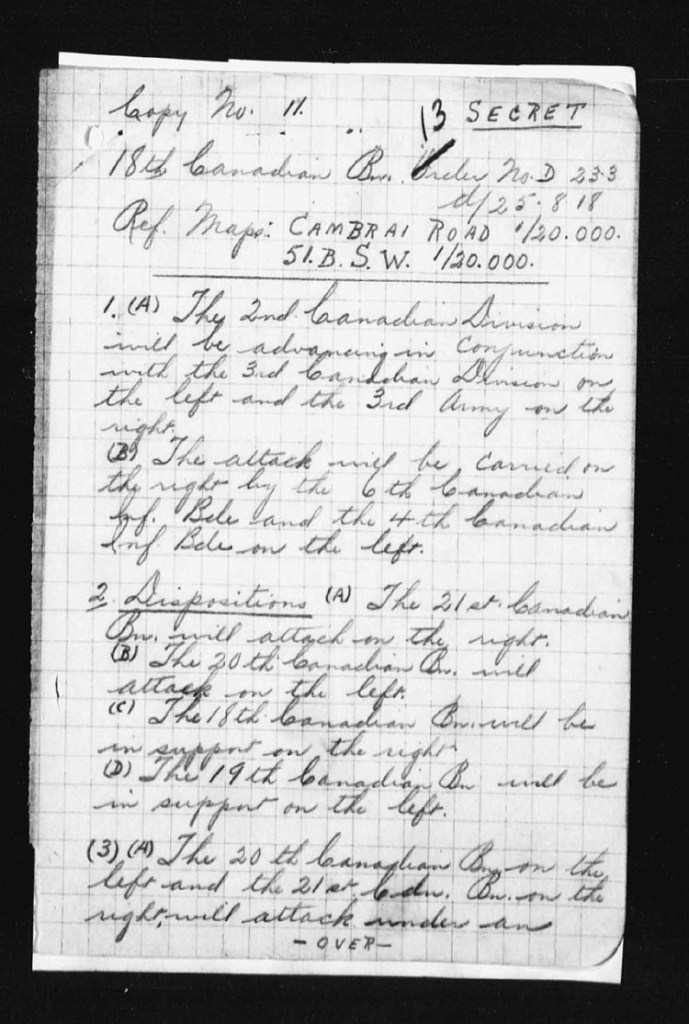 Copy No. 11. 13 SECRET
18th Canadian Bn. Order No. D 233
d/25.8.18
Ref. Maps: CAMBRAI ROAD 1/20.000.
51.B.S.W. 1/20.000.
1. (A) The 2nd Canadian Division
will be advancing in conjunction
with the 3rd Canadian Division on
the left and the 3rd Army on the
right.
(B) The attack will be carried on
the right by the 6th Canadian
Inf. Bde and the 4th Canadian
Inf Bde on the left.
2. Dispositions (A) The 21st. Canadian
Bn. will attack on the right.
(B) The 20th Canadian Bn. will
attack on the left.
(C) The 18th Canadian Bn. will be
in support on the right
(D) The 19th Canadian Bn will be
in support on the left.
(3) (A) The 20th Canadian Bn. on the
left and the 21st. Cdn. Bn. on the
right, will attack under an
- OVER -